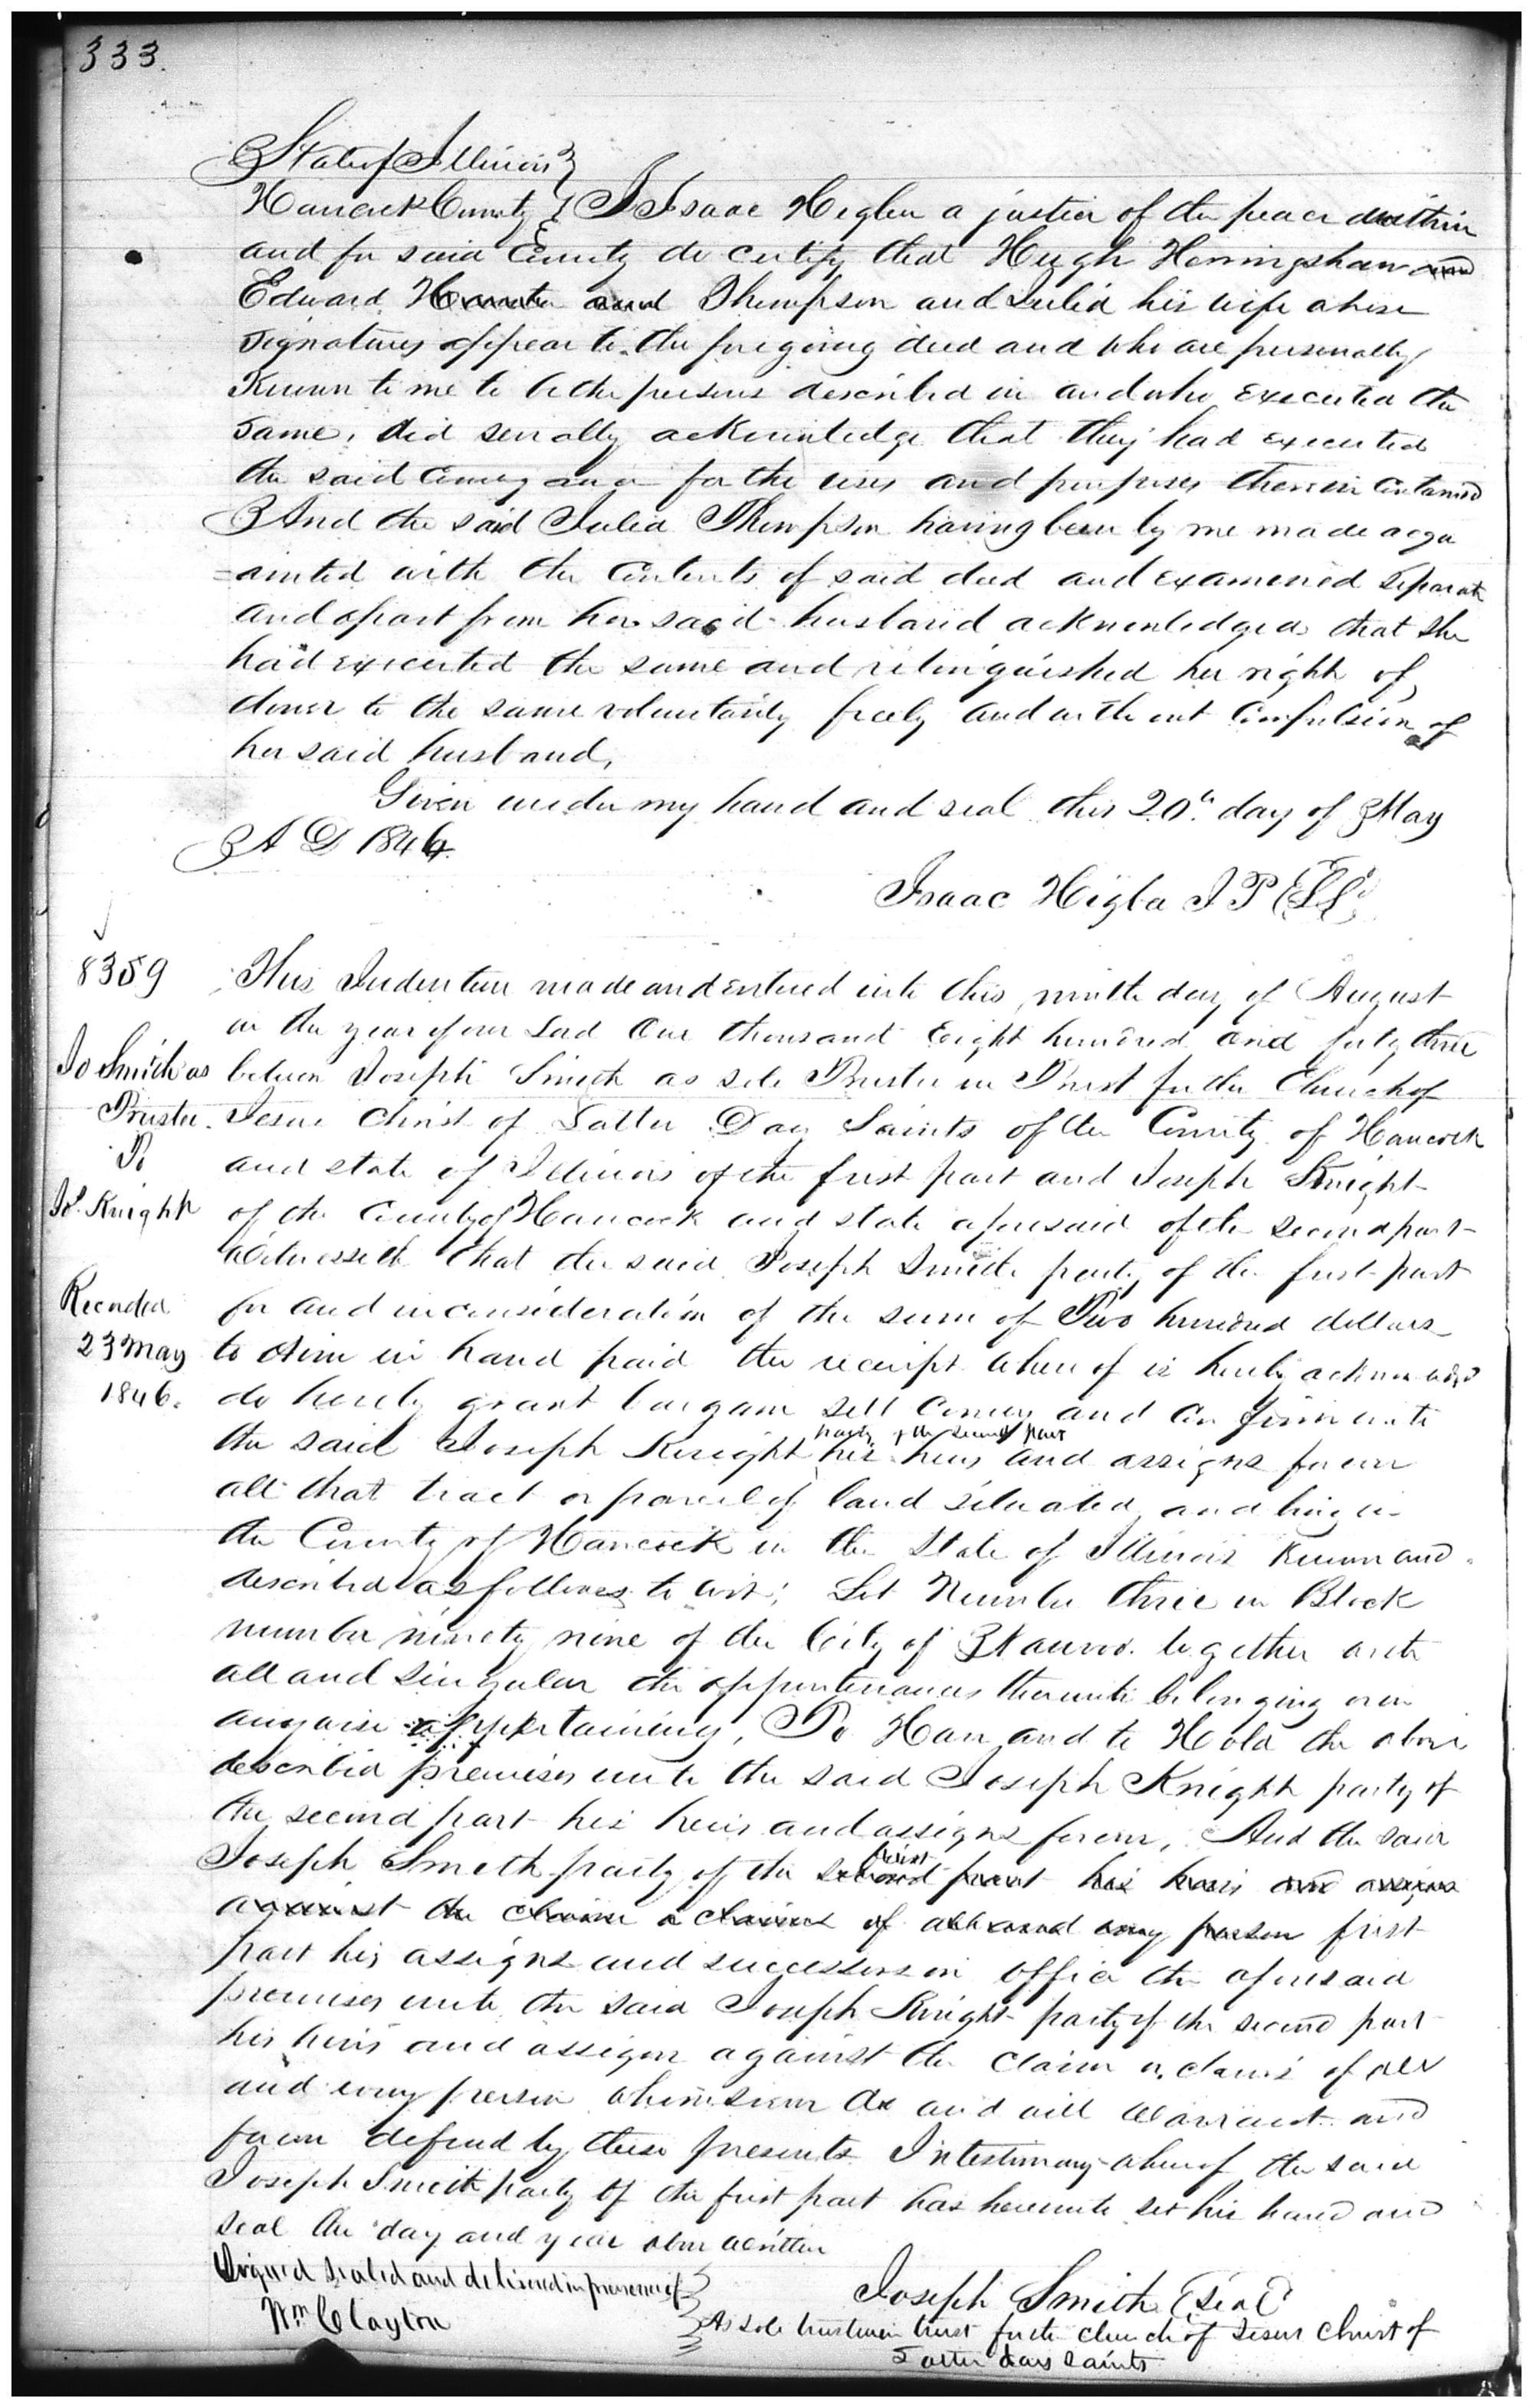 333.
State of Illinois
Hancock County } I Isaac Higbee a justice of the peace within
and for said County do certify that Hugh Herringshaw and
Edward Hunter and Thompson and Julia his wife whose
signatures appear to the foregoing deed and who are personally
Known to me to be the persons described in and who executed the
same, did severally acknowledge that they had executed
the said conveyance for the uses and purposes therein contained
And the said Julia Thompson having been by me made acqu
=ainted with the contents of said deed and examined separate
and apart from her said husband acknowledged that she
had executed the same and relinquished her right of
dower to the same voluntarily freely and without compulsion of
her said husband,
Given under my hand and seal this 20th day of May
A D 1844.
Isaac Higbee J P (LS)
8359
Jo Smith as
Trustee.
To
Jos. Knight
Recorded
23 May
1846.
This Indenture made and entered into this ninth day of August
in the year of our Lord One thousand Eight hundred and forty three
between Joseph Smith as sole Trustee in Trust for the Church of
Jesus Christ of Latter Day Saints of the County of Hancock
and state of Illinois of the first part and Joseph Knight
of the County of Hancock and state aforesaid of the second part
Witnesseth that the said Joseph Smith party of the first part
for and in consideration of the sum of Two hundred dollars
to him in hand paid the receipt whereof is hereby acknowledged
do hereby grant bargain sell convey and confirm unto
party of the second part
the said Joseph Knight his heirs and assigns forever
all that tract or parcel of land situated and lying in
the County of Hancock in the State of Illinois Known and
described as follows to wit; Lot Number three in Block
number ninety nine of the City of Nauvoo. together with
all and singular the appurtenances thereunto belonging or in
anywise appertaining, To Have and to Hold the above
described premises unto the said Joseph Knight party of
the second part his heirs and assigns forever, And the said
first
Joseph Smith party of the second part his heirs and assigns
against the claim or claims of all and every person first
part his assigns and successors in office the aforesaid
premises unto the said Joseph Knight party of the second part
his heirs and assigns against the claim or claims of all
and every person whomsoever do and will warrant and
forever defend by these presents In testimony whereof the said
Joseph Smith party of the first part has hereunto set his hand and
seal the day and year above written
Signed sealed and delivered in presence of
Wm Clayton
Joseph Smith (Seal)
As sole trustee in trust for the church of Jesus Christ of
Latter days Saints